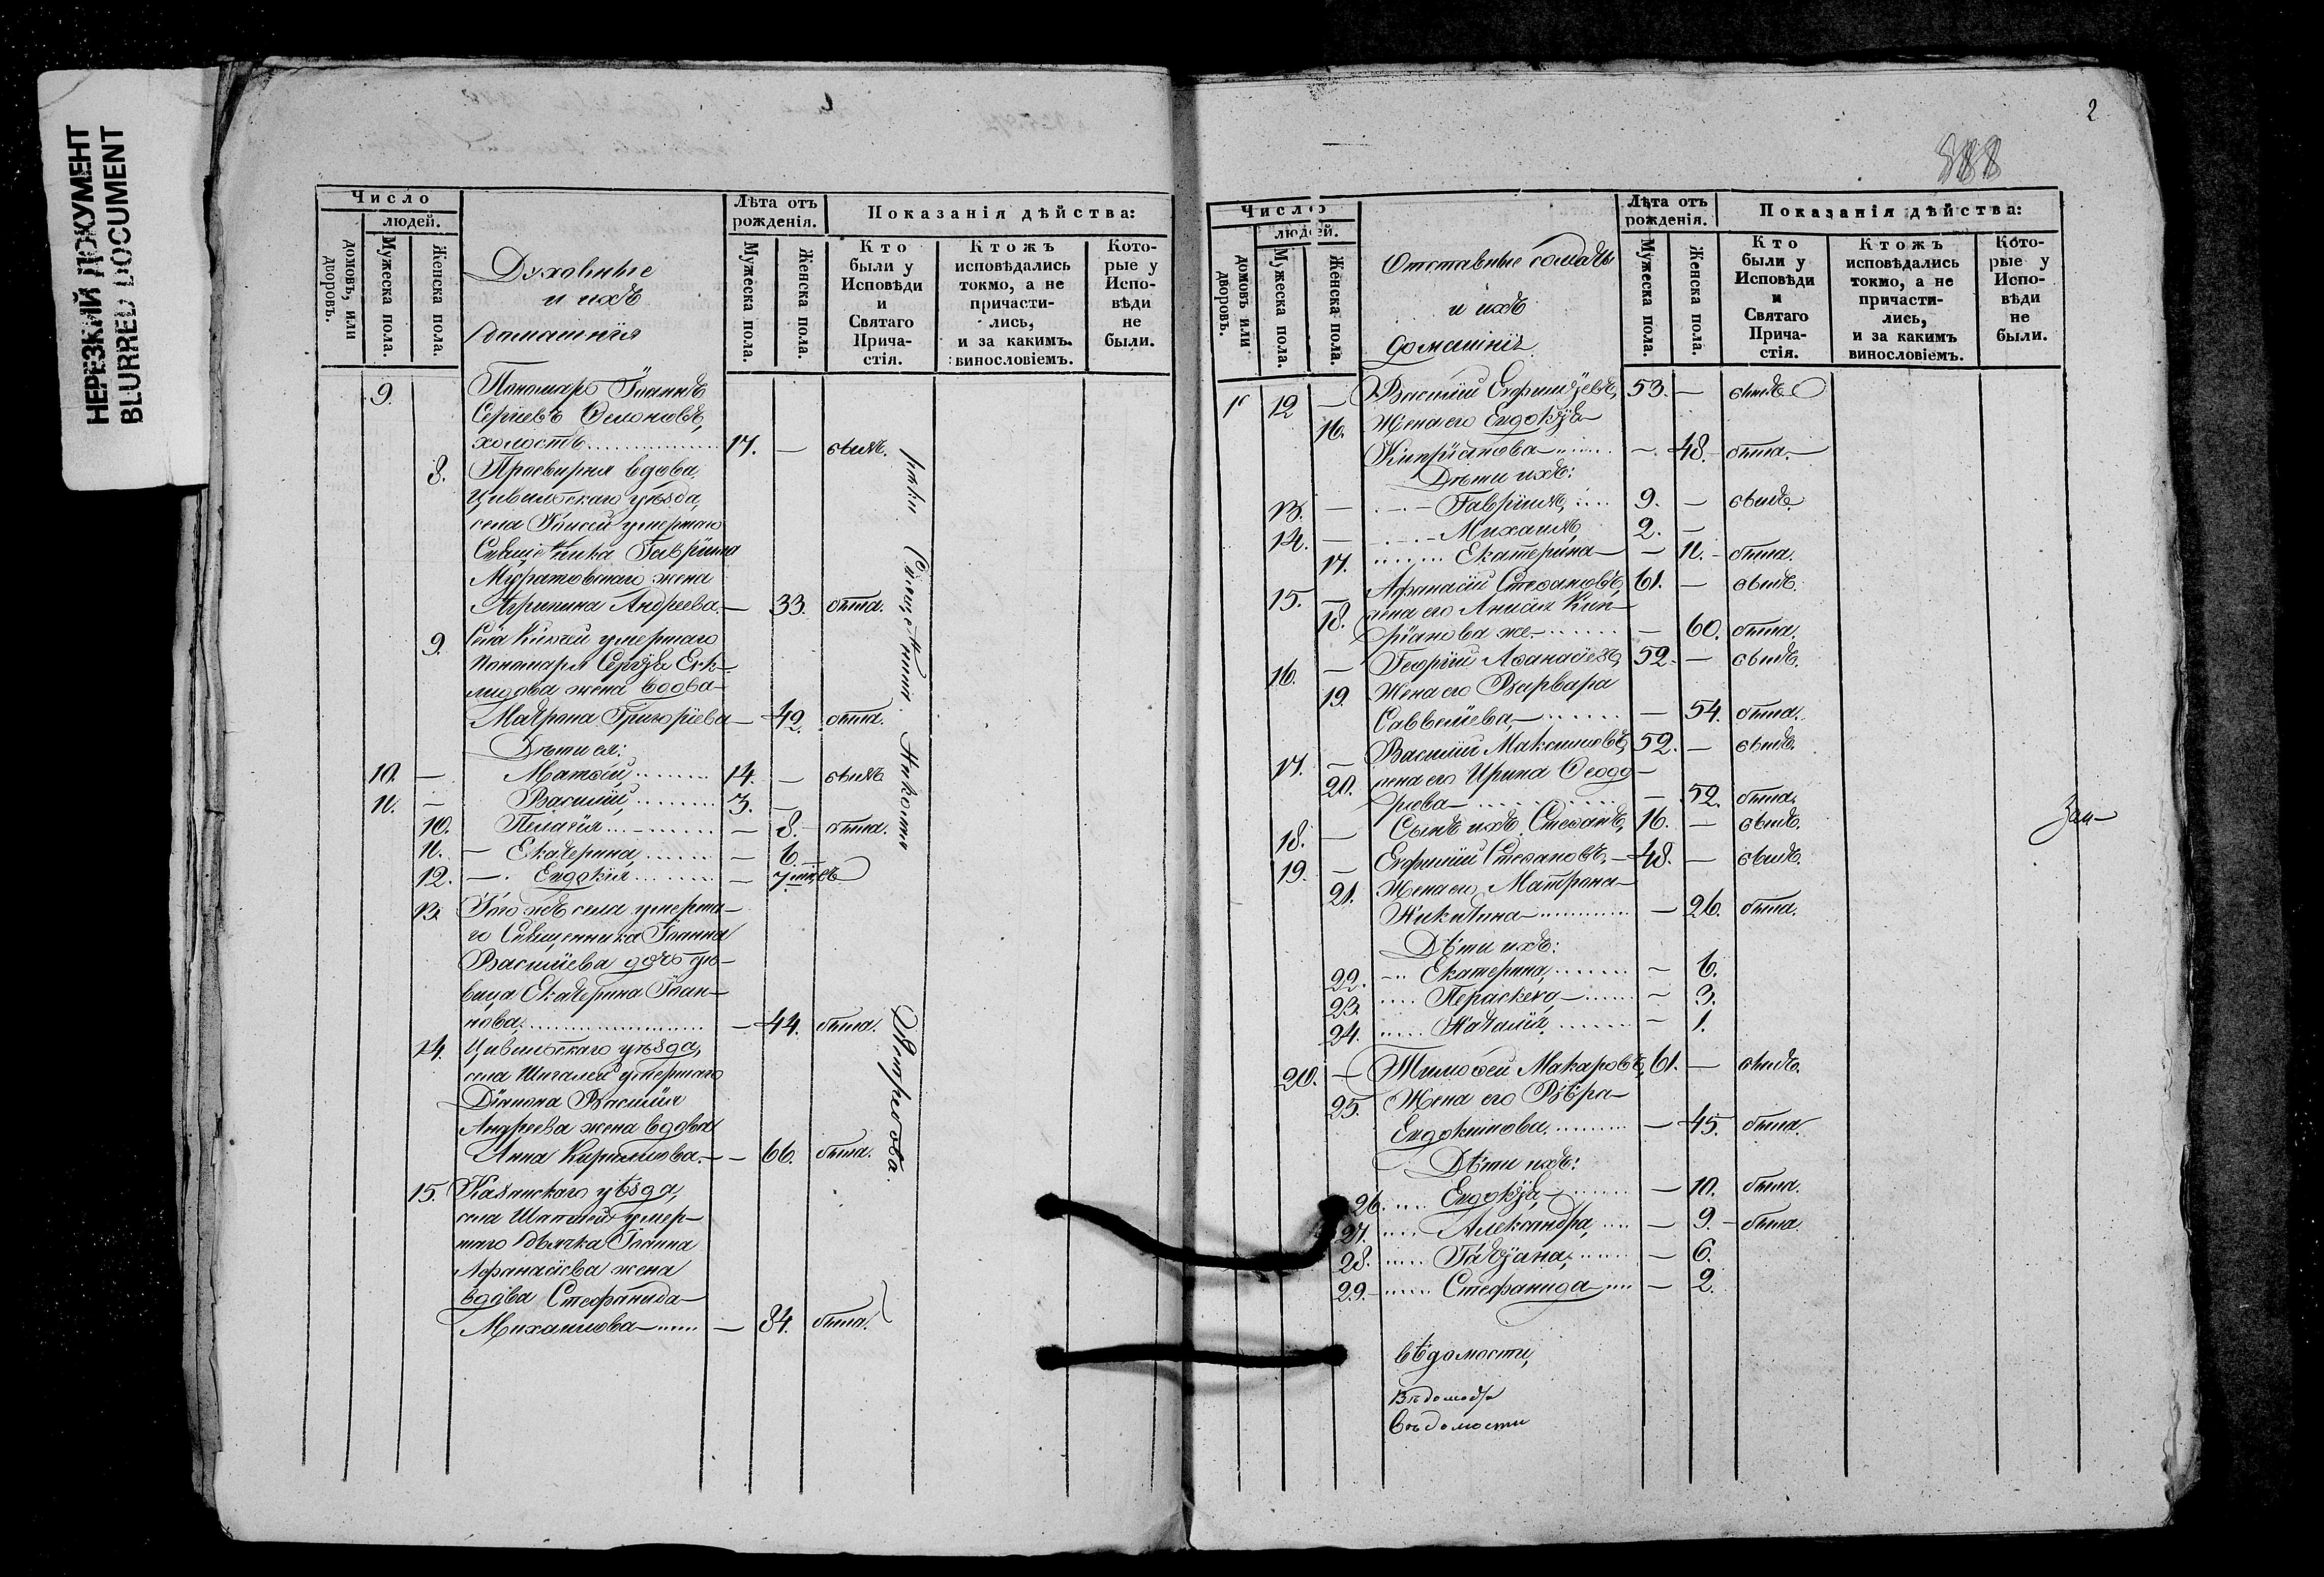 НЕРЕЗКИЙ ДОКУМЕНТ
BLURRED DOCUMENT
Число
людей.
домовъ, или дворовъ.
Мужеска пола.
Женска пола.
Духовные
и ихъ
домашнія
Лѣта отъ рожденія.
Мужеска пола.
Женска пола.
Показанія дѣйства:
Кто были у Исповѣди и Святаго Прича-стія.
Ктожъ исповѣдались токмо, а не причасти-лись, и за какимъ винословіемъ.
Кото-рые у Испо-вѣди не были.
9. Пономарь Іоаннъ
Сергіевъ
холостъ 17. — былъ.
8. Просвирня вдова
Цивильскаго уѣзда,
села умершаго
Священника Гавріила
Муратовскаго жена
Агрипина Андреева — 33. была.
9. Села умершаго
Пономаря Сергѣя
жена вдова
Матрона Григоріева — 42. была.
Дѣти ея:
10. — Матѳій 14. — былъ
11. — Василій, 3. —
10. Пелагія — 8. — была.
11. — Екатерина, — 6. —
12. — Евдокія — 7 мѣ
13. Того жъ села умерша-
го Священника Іоанна
Василіева дочь дѣ-
вица Екатерина Іоан-
нова — 44. была.
14. Цивильскаго уѣзда,
села Шигалей умершаго
Діакона Василія
Андреева жена вдова
Анна Кирилова. — 66. была.
15. Казанскаго уѣзда,
села умер-
шаго дьячка Іоанна
Афанасіева жена
вдова Стефанида
Михаилова — 84. была.
Священникъ Николай
2
888
Число
людей.
домовъ или дворовъ.
Мужеска пола.
Женска пола.
Отставные солдаты
и ихъ
домашнія
Лѣта отъ рожденія.
Мужеска пола.
Женска пола.
Показанія дѣйства:
Кто были у Исповѣди и Святаго Прича-стія.
Ктожъ исповѣдались токмо, а не причасти-лись, и за какимъ винословіемъ.
Кото-рые у Испо-вѣди не были.
12 — Василій Евфиміевъ, 53. — былъ
16. Жена его Евдокія
Кипріанова — 48. — была.
Дѣти ихъ:
13. — Гавріилъ, 9. — былъ
14. — Михаилъ, 2. —
17. Екатерина — 11. — была.
15. — Афанасій Стефановъ, 61. — былъ.
18. жена его Анисія Кип-
ріанова же — 60. была.
16. — Георгій Аѳанасіевъ, 52. — былъ.
19. Жена его Варвара
Савельева, — 54. была.
17. — Василій Максимовъ, 52. — былъ.
20. жена его Ирина Ѳеодо-
рова — 52. была.
18. — Сынъ ихъ Стефанъ, 16. — былъ.
19. — Евфимій Стефановъ, — 48. — былъ.
21. Жена его Матрона
Никитина — 26. была.
Дѣти ихъ:
22. Екатерина, — 6.
23. Параскева, — 3.
24. Наталія — 1.
20. — Тимоѳей Макаровъ, 61. — былъ.
25. Жена его Вѣра
Евдокимова — 45. была.
Дѣти ихъ:
26. Евдокія, — 10. была.
27. Александра, — 9. — была.
28. Татіана, — 6.
29. Стефанида — 2.
вѣдомости,
Вѣдомость
Вѣдомости